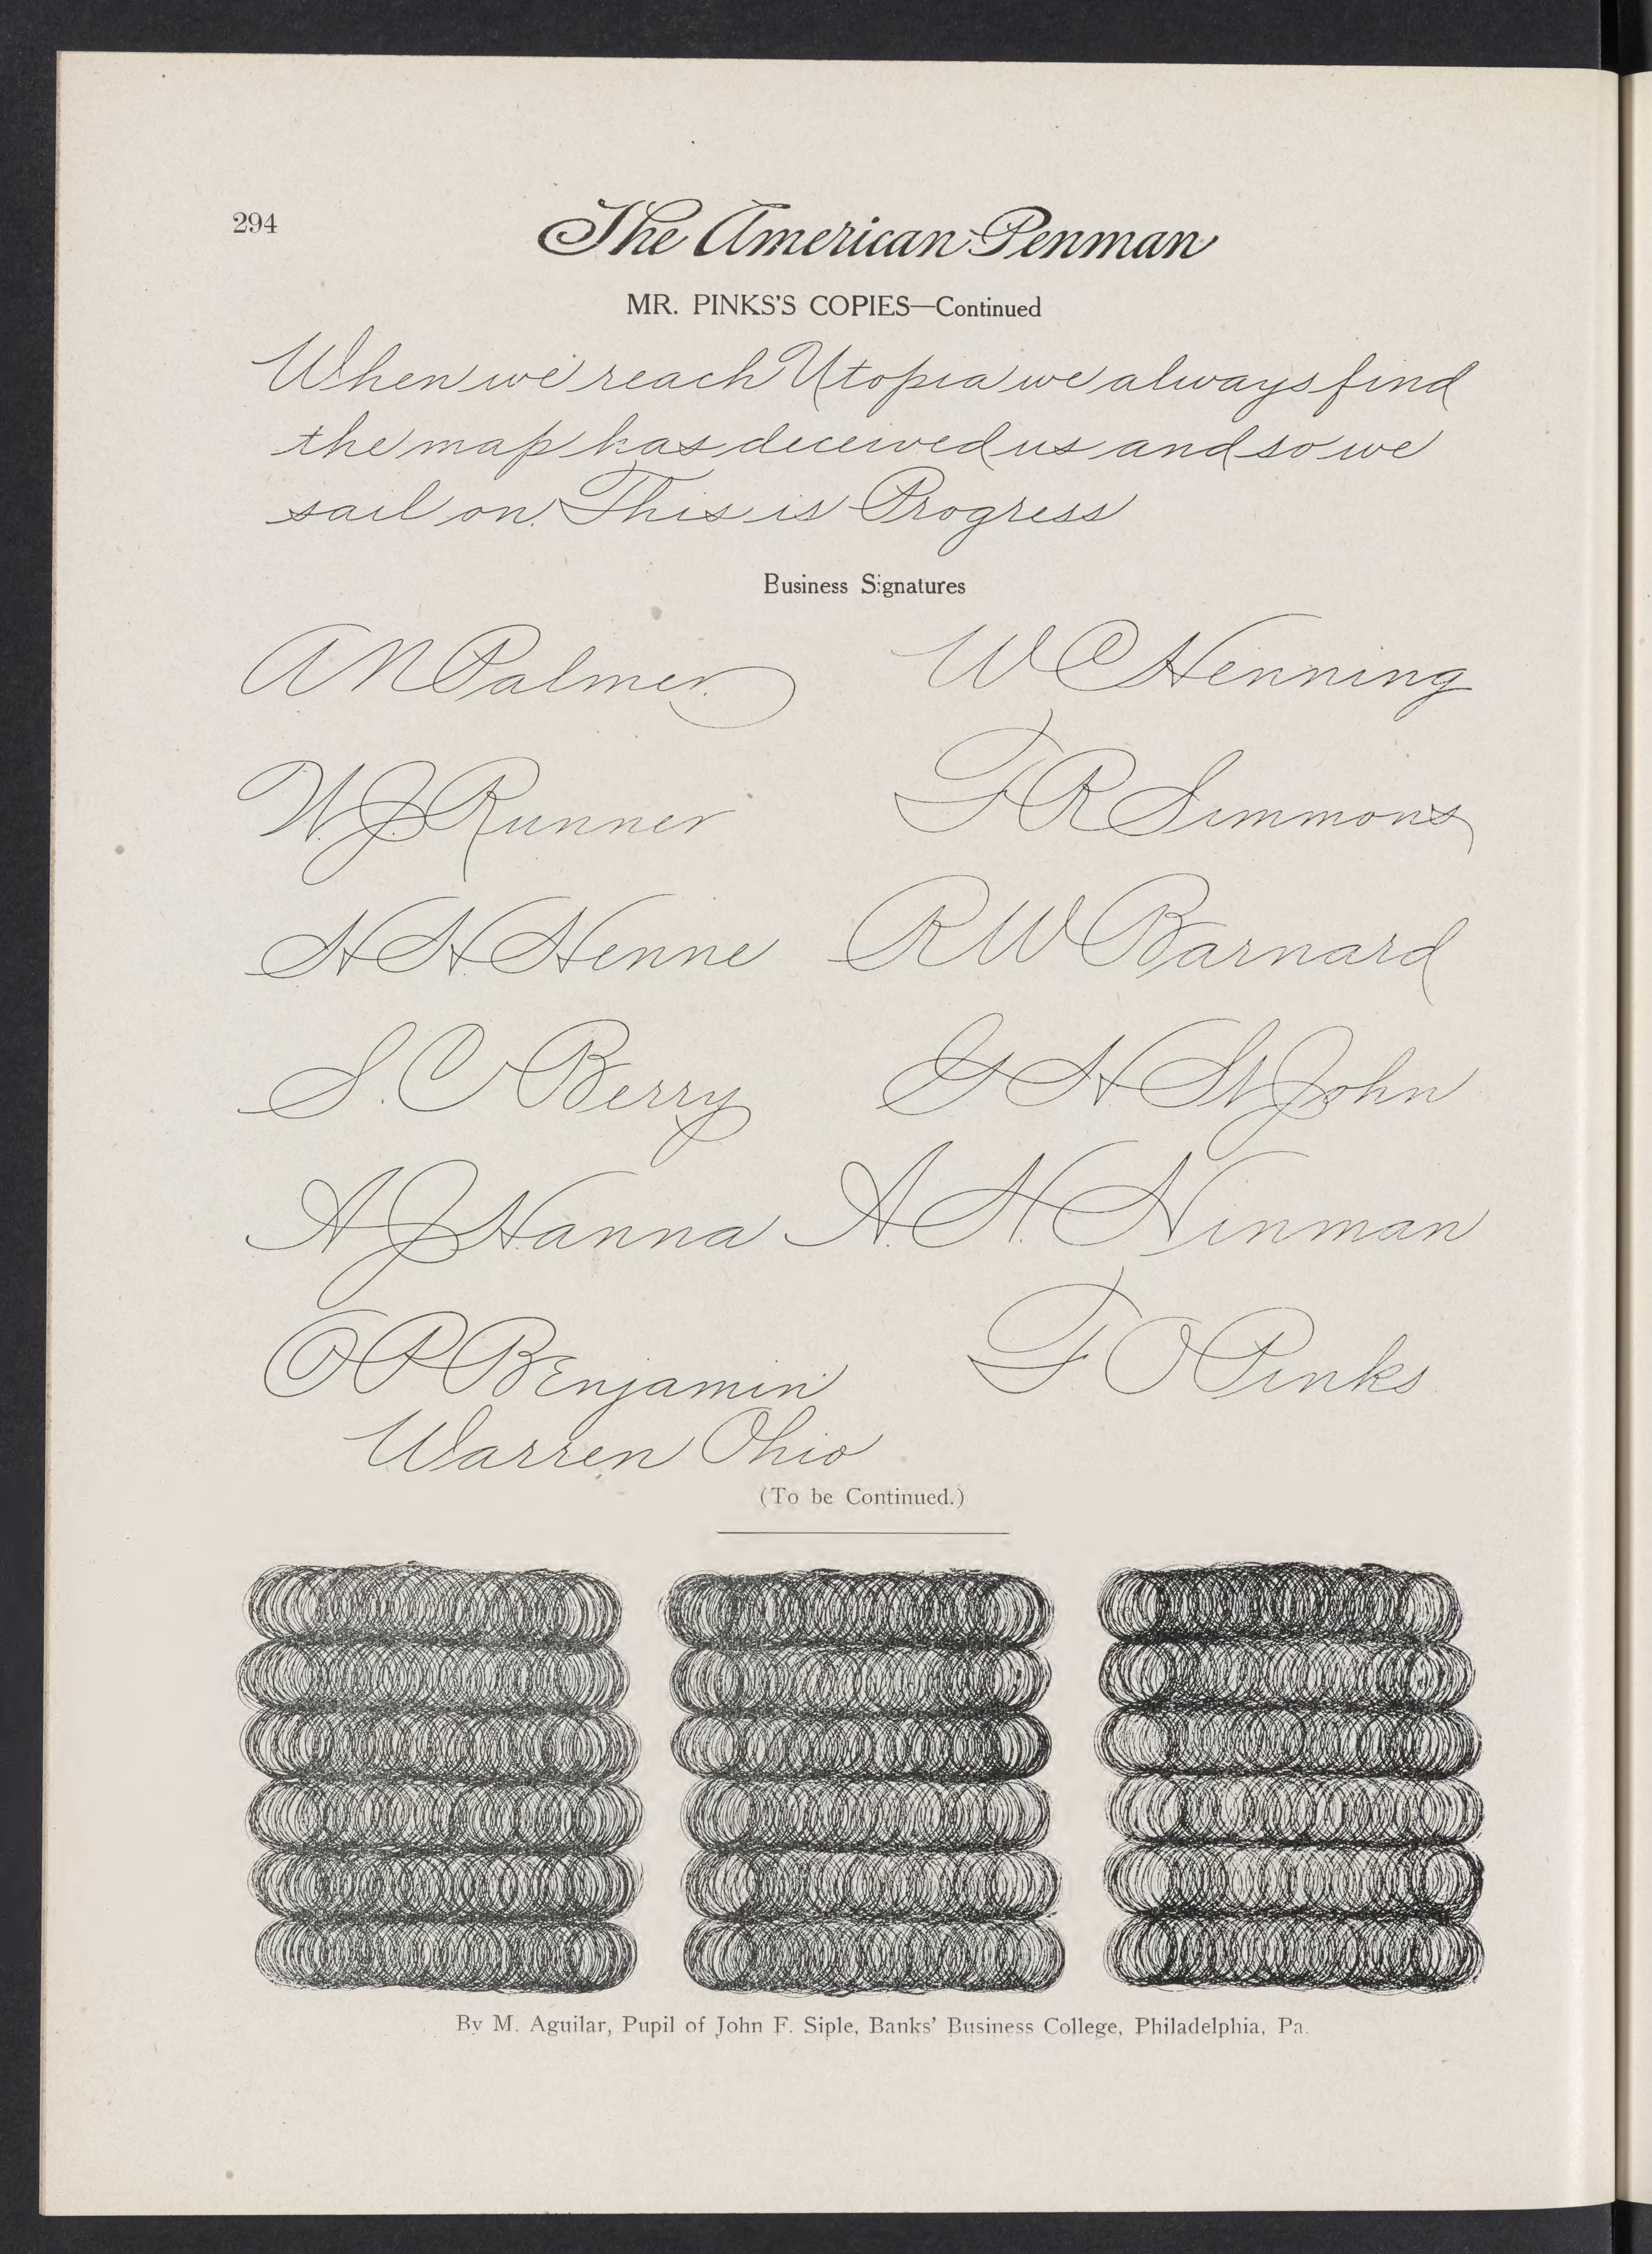 294
The American Penman
MR. PINKS'S COPIES—Continued
When we reach Utopia we always find
the map has deceived us and so we
sail on. This is Progress
Business Signatures
A N Palmer. W C Henning
W. J. Runner F R Simmons
H H. Henne R W Barnard
S. C Berry G H St John
A J Hanna A. H. Hinman
O P BEnjamin F. O Pinks
Warren Ohio
(To be Continued.)
By M. Aguilar, Pupil of John F. Siple, Banks' Business College, Philadelphia, Pa.